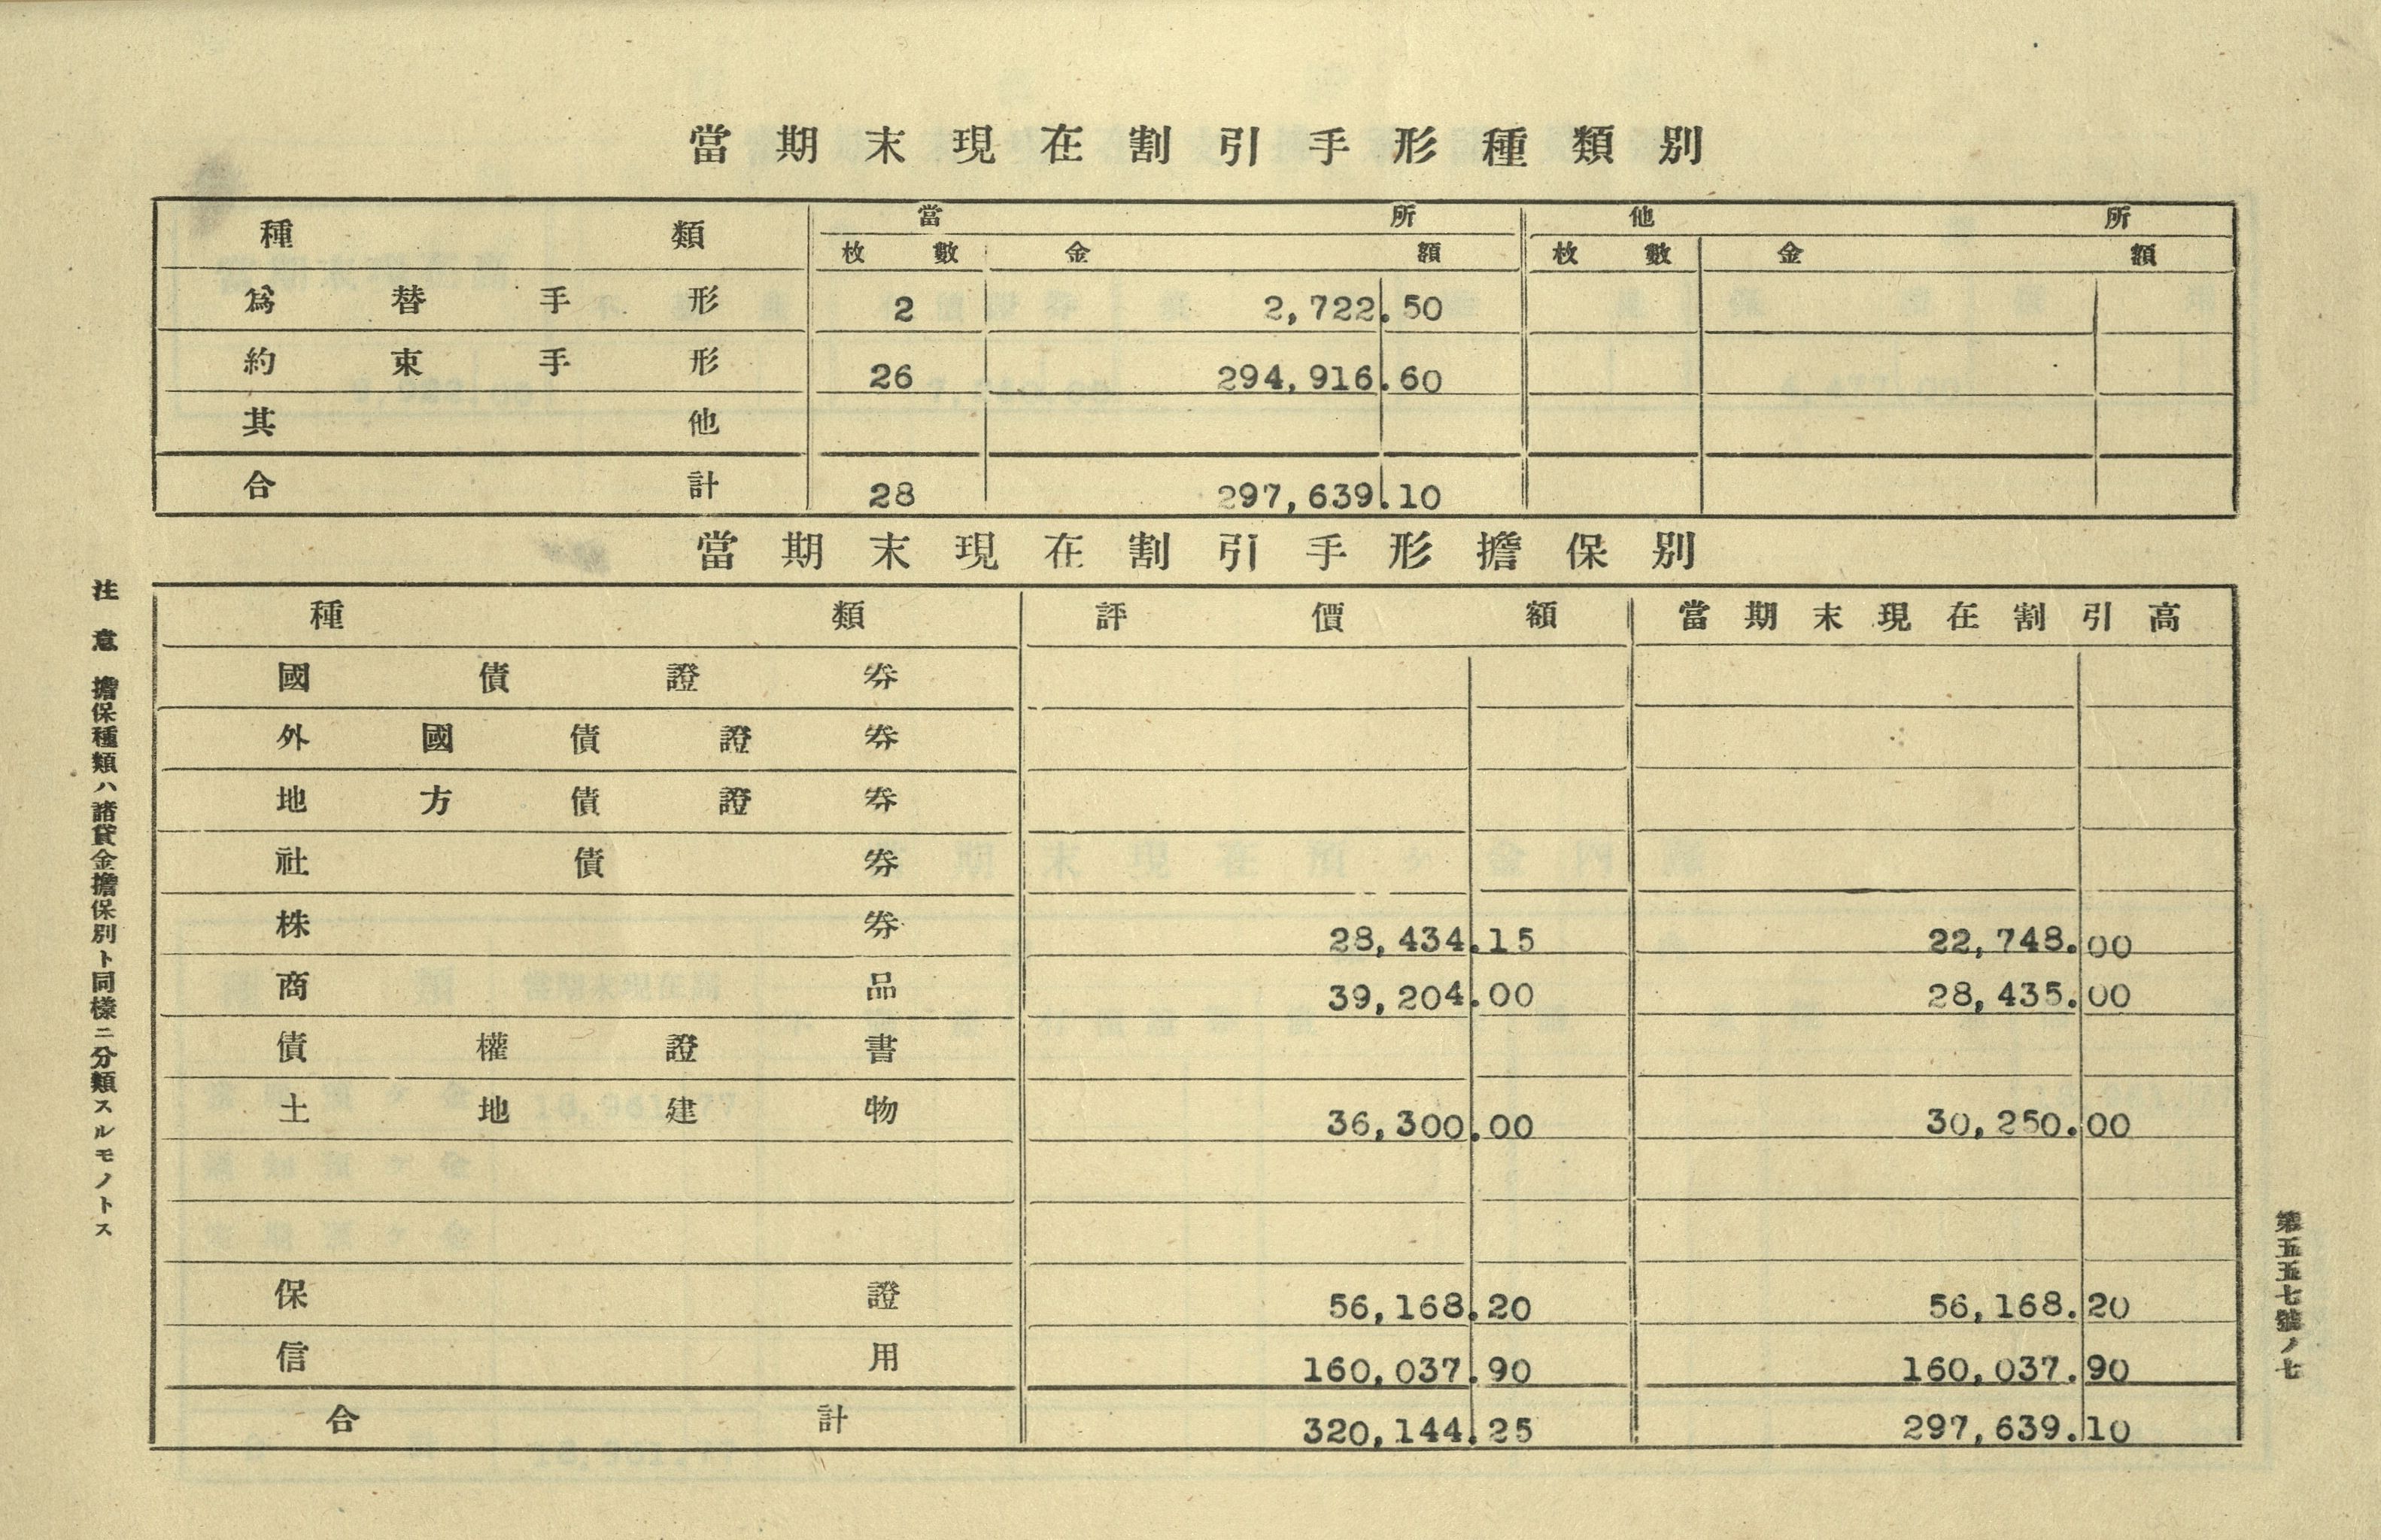 當期末現在割引手形種類別
種類 當所 他所
枚數 金額 枚數 金額
爲替手形 2 2,722.50
約束手形 26 294,916.60
其他
合計 28 297,639.10
當期末現在割引手形擔保別
種類 評價額 當期末現在割引高
國債證券
外國債證券
地方債證券
社債券
株券 28,434.15 22,748.00
商品 39,204.00 28,435.00
債權證書
土地建物 36,300.00 30,250.00
保證 56,168.20 56,168.20
信用 160,037.90 160,037.90
合計 320,144.25 297,639.10
注意 擔保種類ハ諸貸金擔保別ト同樣ニ分類スルモノトス
第五五七號ノ七